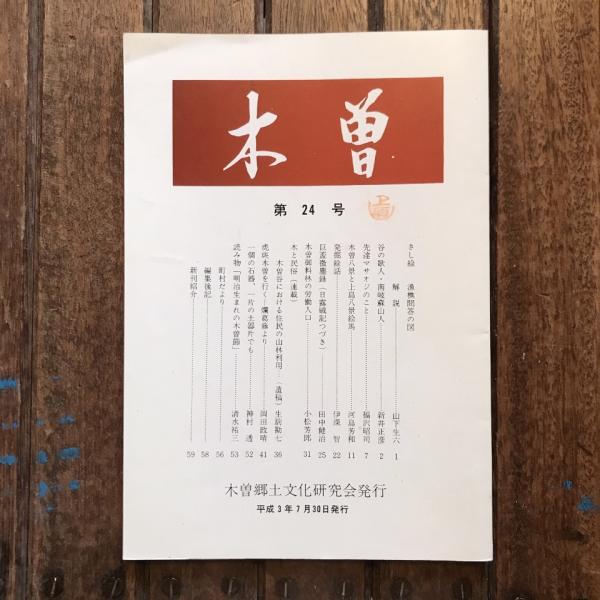 木曽
第 24 号
さし絵 漁樵問答の図
解説 山下生六 1
谷の歌人・南岐蘇山人 新井正彦 2
先達マサオジのこと 福沢昭司 7
木曽八景と上島八景絵馬 河島芳和 11
発掘余話 伊深智 22
巨匪徴塵録(日露戦記つづき) 田中健治 25
木曽御料林の労働人口 小松芳郎 31
木と民俗(連載)
木曽谷における住民の山林利用 (遺稿) 生駒勘七 36
虎斑木曽を行く―爛葛藤より 岡田政晴 41
一個の石器、一片の土器片でも 神村透 52
読み物「明治生まれの木曽節」 清水祐三 53
町村だより 56
編集後記 58
新刊紹介 59
木曽郷土文化研究会発行
平成3年7月30日発行